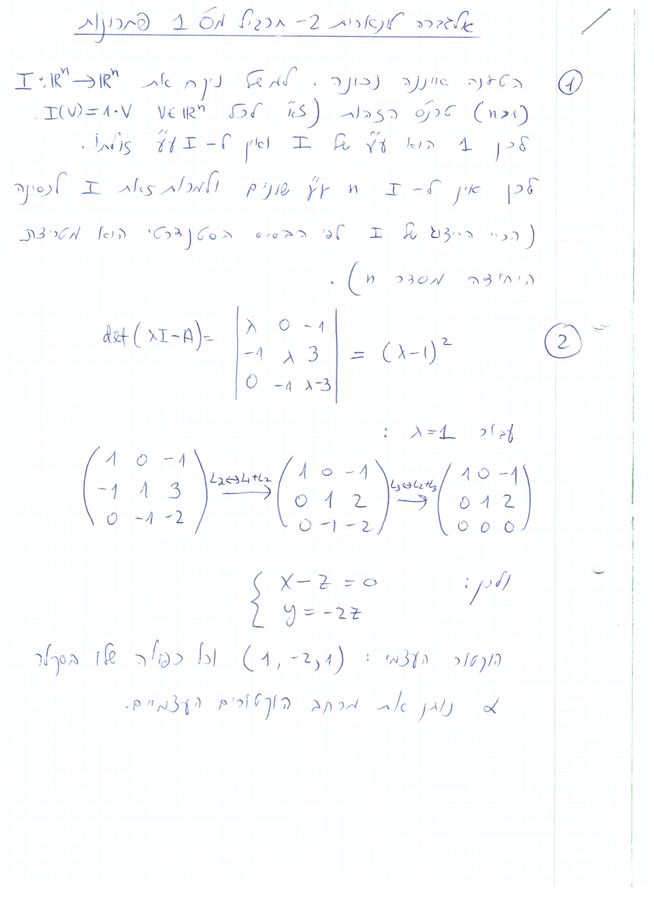 אלגברה לינארית 2- תרגיל מס 1 פתרונות
① הטענה איננה נכונה. למשל ניקח את I:ℝⁿ→ℝⁿ
טרנס הזהות (ז"א לכל v∈ℝⁿ I(v)=1·v).
לכן 1 הוא ע"ע של I ואין ל-I ע"ע זולתו.
לכן אין ל-I n ע"ע שונים ולמרות זאת I לכסינה
(הרי הייצוג של I לפי הבסיס הסטנדרטי הוא מטריצת
היחידה מסדר n).
② det(λI-A)= |λ 0 -1; -1 λ 3; 0 -1 λ-3| = (λ-1)²
עבור λ=1 :
(1 0 -1; -1 1 3; 0 -1 -2) L₂↔L₁+L₂ → (1 0 -1; 0 1 2; 0 -1 -2) L₃↔L₂+L₃ → (1 0 -1; 0 1 2; 0 0 0)
ולכן: { x-z=0
y=-2z
הוקטור העצמי: (1,-2,1) וכל כפולה שלו בסקלר
α נותן את מרחב הוקטורים העצמיים.